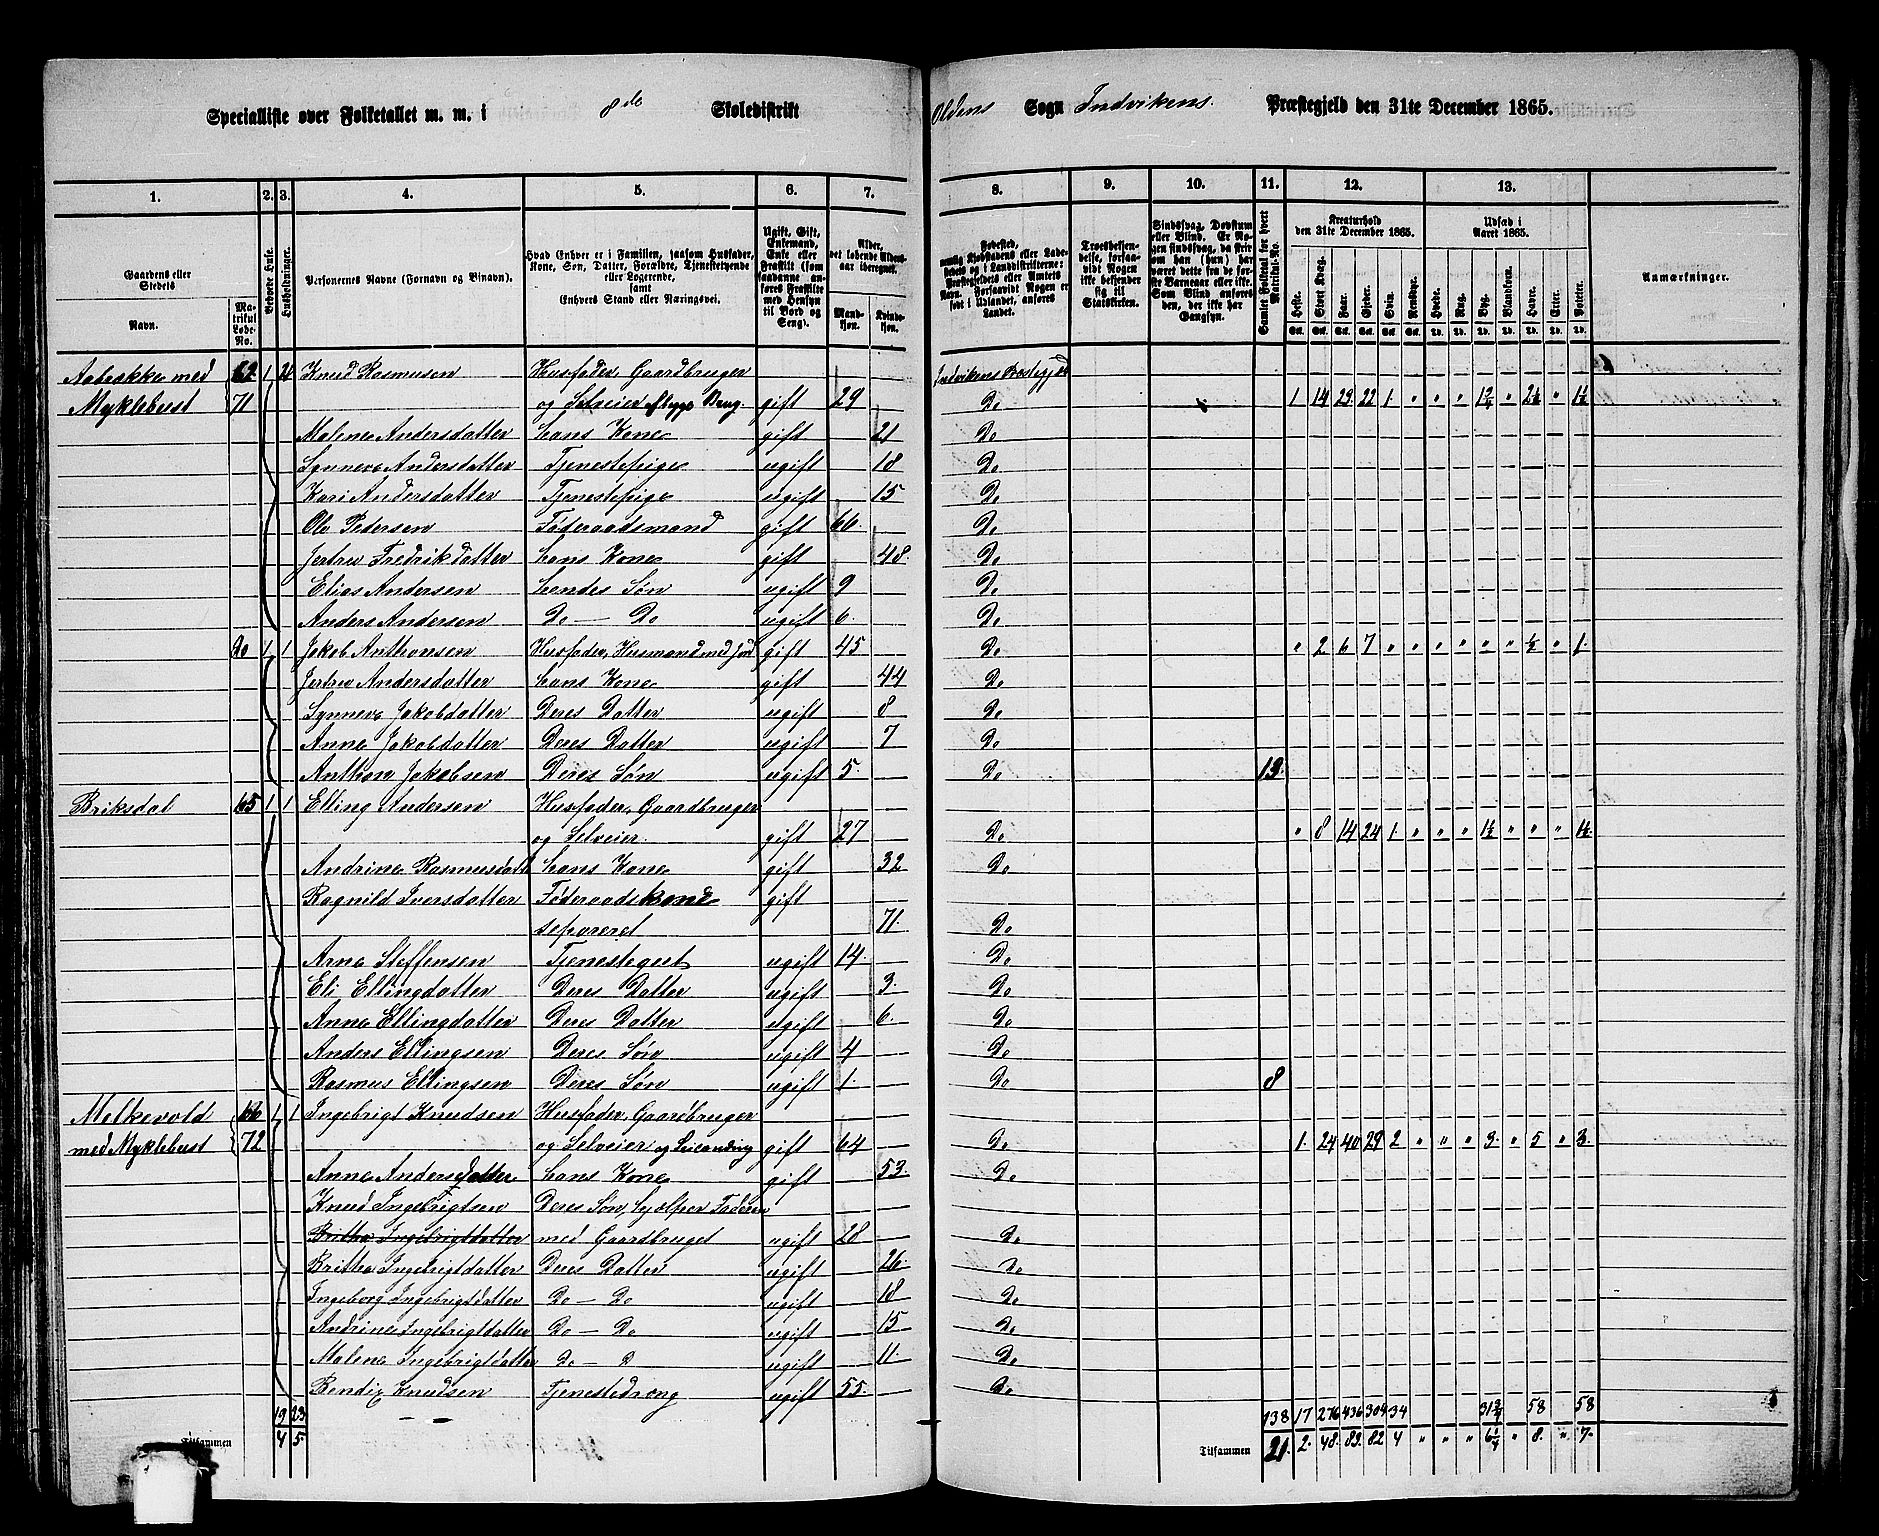 Specialliste over Folketallet m. m. i 8de Skoledistrikt Oldens Sogn Indvikens Præstegjeld den 31te December 1865.
1. 2. 3. 4. 5. 6. 7. 8. 9. 10. 11. 12. 13.
Gaardens eller Stedets Navn. Matrikul Løbe-No. Bebyede Huse. Husholdninger. Personernes Navne (Fornavn og Binavn). Hvad Enhver er i Familien, saasom Husfader, Kone, Søn, Datter, Forældre, Tjenestetyende eller Logerende, samt Enhvers Stand eller Næringsvei. Ugift, Gift, Enkemand, Enke eller Fraskilt (som saadanne anføres Fraskilte med Hensyn til Bord og Seng). Alder, det løbende Aldersaar iberegnet. Mandkjøn. Kvindekjøn.
Kreaturhold den 31te December 1865. Udsæd i Aaret 1865. Anmærkninger.
Samlet Folketal for hvert Matrikul-No. Heste. Stort Kvæg. Faar. Gjeder. Svin. Rensdyr. Hvede. Rug. Byg. Blandkorn. Havre. Erter. Poteter.
Aabrække med 62 1 2 Knud Rasmusen Husfader Gaardbruger Indvikens Præstegjeld
Myklebust 71 og Selveier gift 29 Do 1 14 29 22 1 " " "
Malene Andersdatter hans Kone gift 21 Do
Synneve Andersdatter Tjenestepige ugift 18 Do
Kari Andersdatter Tjenestepige ugift 15 Do
Ole Pedersen Føderaadsmand gift 66 Do
Jertrue Fredrikdatter hans Kone gift 48 Do
Elias Andersen hendes Søn ugift 9 Do
Anders Andersen Do — Do ugift 6 Do
Do 1 1 Jakob Anthonsen Husfader, Husmand med Jord gift 45 Do " 2 6 7 " " " " " " ½ " 1
Jertrue Andersdatter hans Kone gift 44 Do
Synneve Jakobdatter Deres Datter ugift 8 Do
Anna Jakobdatter Deres Datter ugift 7 Do
Anthon Jakobsen Deres Søn ugift 5 Do 13
Briksdal 65 1 1 Elling Andersen Husfader, Gaardbruger
og Selveier gift 27 Do " 8 14 24 1 " " " 1½ " " " 1½
Andrine Rasmusdatt hans Kone gift 32 Do
Ragnild Iversdatter Føderaadskone gift
separeret 71 Do
Arne Steffensen Tjenestegut ugift 14 Do
Eli Ellingdatter Deres Datter ugift 3 Do
Anna Ellingdatter Deres Datter ugift 6 Do
Anders Ellingsen Deres Søn ugift 4 Do
Rasmus Ellingsen Deres Søn ugift 1 Do 8
Melkevold 66 1 1 Ingebrigt Knudsen Husfader, Gaardbruger
med Myklebust 72 og Selveier og Leilænding gift 64 Do 1 24 40 29 2 " " " 3 " 5 " 3
Anna Andersdatter hans Kone gift 53 Do
Knud Ingebrigtsen Deres Søn, hjælper Faderen
Britha Ingebrigtdatter med Gaardbruget ugift 28 Do
Britha Ingebrigtdatter Deres Datter ugift 26 Do
Ingeborg Ingebrigtdatter Do — Do ugift 18 Do
Andrine Ingebrigtdatter Do — Do ugift 15 Do
Malene Ingebrigtdatter Do — D ugift 11 Do
Bendix Knudsen Tjenestedreng ugift 55 Do
19 23 138 17 276 436 304 34 31¾ 58 58
Tilsammen 4 5 Tilsammen 21 2 48 89 82 4 " " " 6¼ " 8 " 7